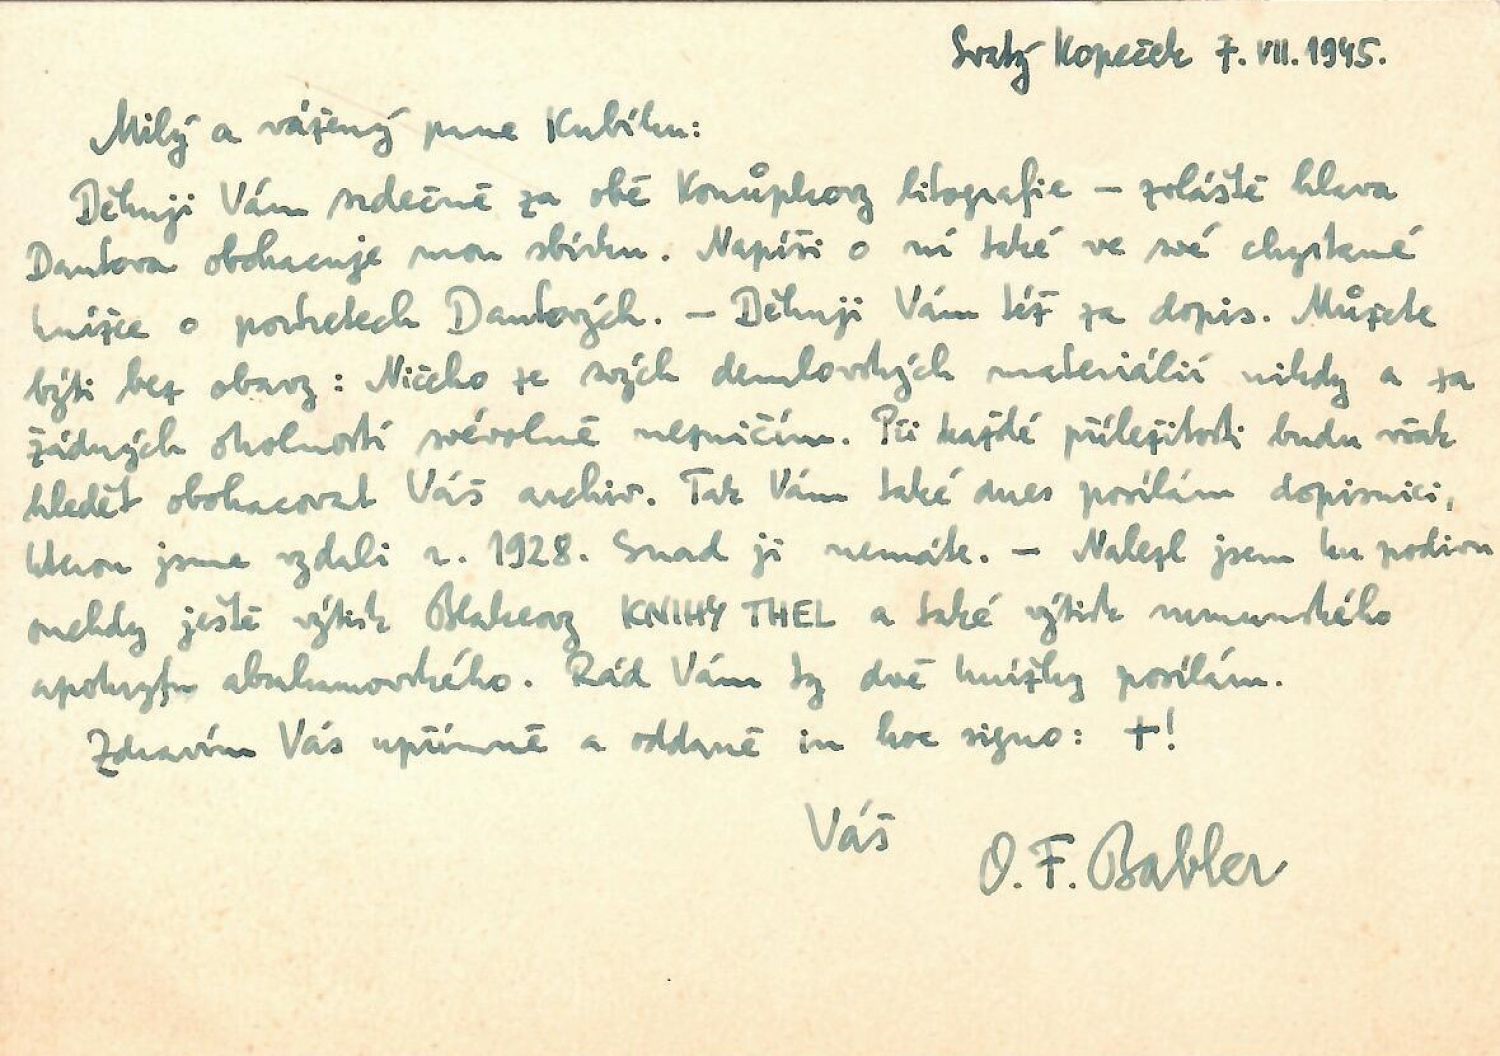 Svatý Kopeček 7. VII. 1945.
Milý a vážený pane Kubíku:
Děkuji Vám srdečně za obě Konůpkovy litografie – zvláště hlava
Dantova obohacuje mou sbírku. Napíši o ní také ve své chystané
knížce o portretech Dantových. – Děkuji Vám též za dopis. Můžete
býti bez obavy: Ničeho ze svých demlovských materiálií nikdy a za
žádných okolností svévolně nezničím. Při každé příležitosti budu však
hledět obohacovat Váš archiv. Tak Vám také dnes posílám dopisnici,
kterou jsme vydali r. 1928. Snad ji nemáte. – Nalezl jsem ku podivu
onehdy ještě výtisk Blakeovy KNIHY THEL a také výtisk rumunského
apokryfu abrahamovského. Rád Vám ty dvě knížky posílám.
Zdravím Vás upřímně a oddaně in hoc signo: †!
Váš O. F. Babler